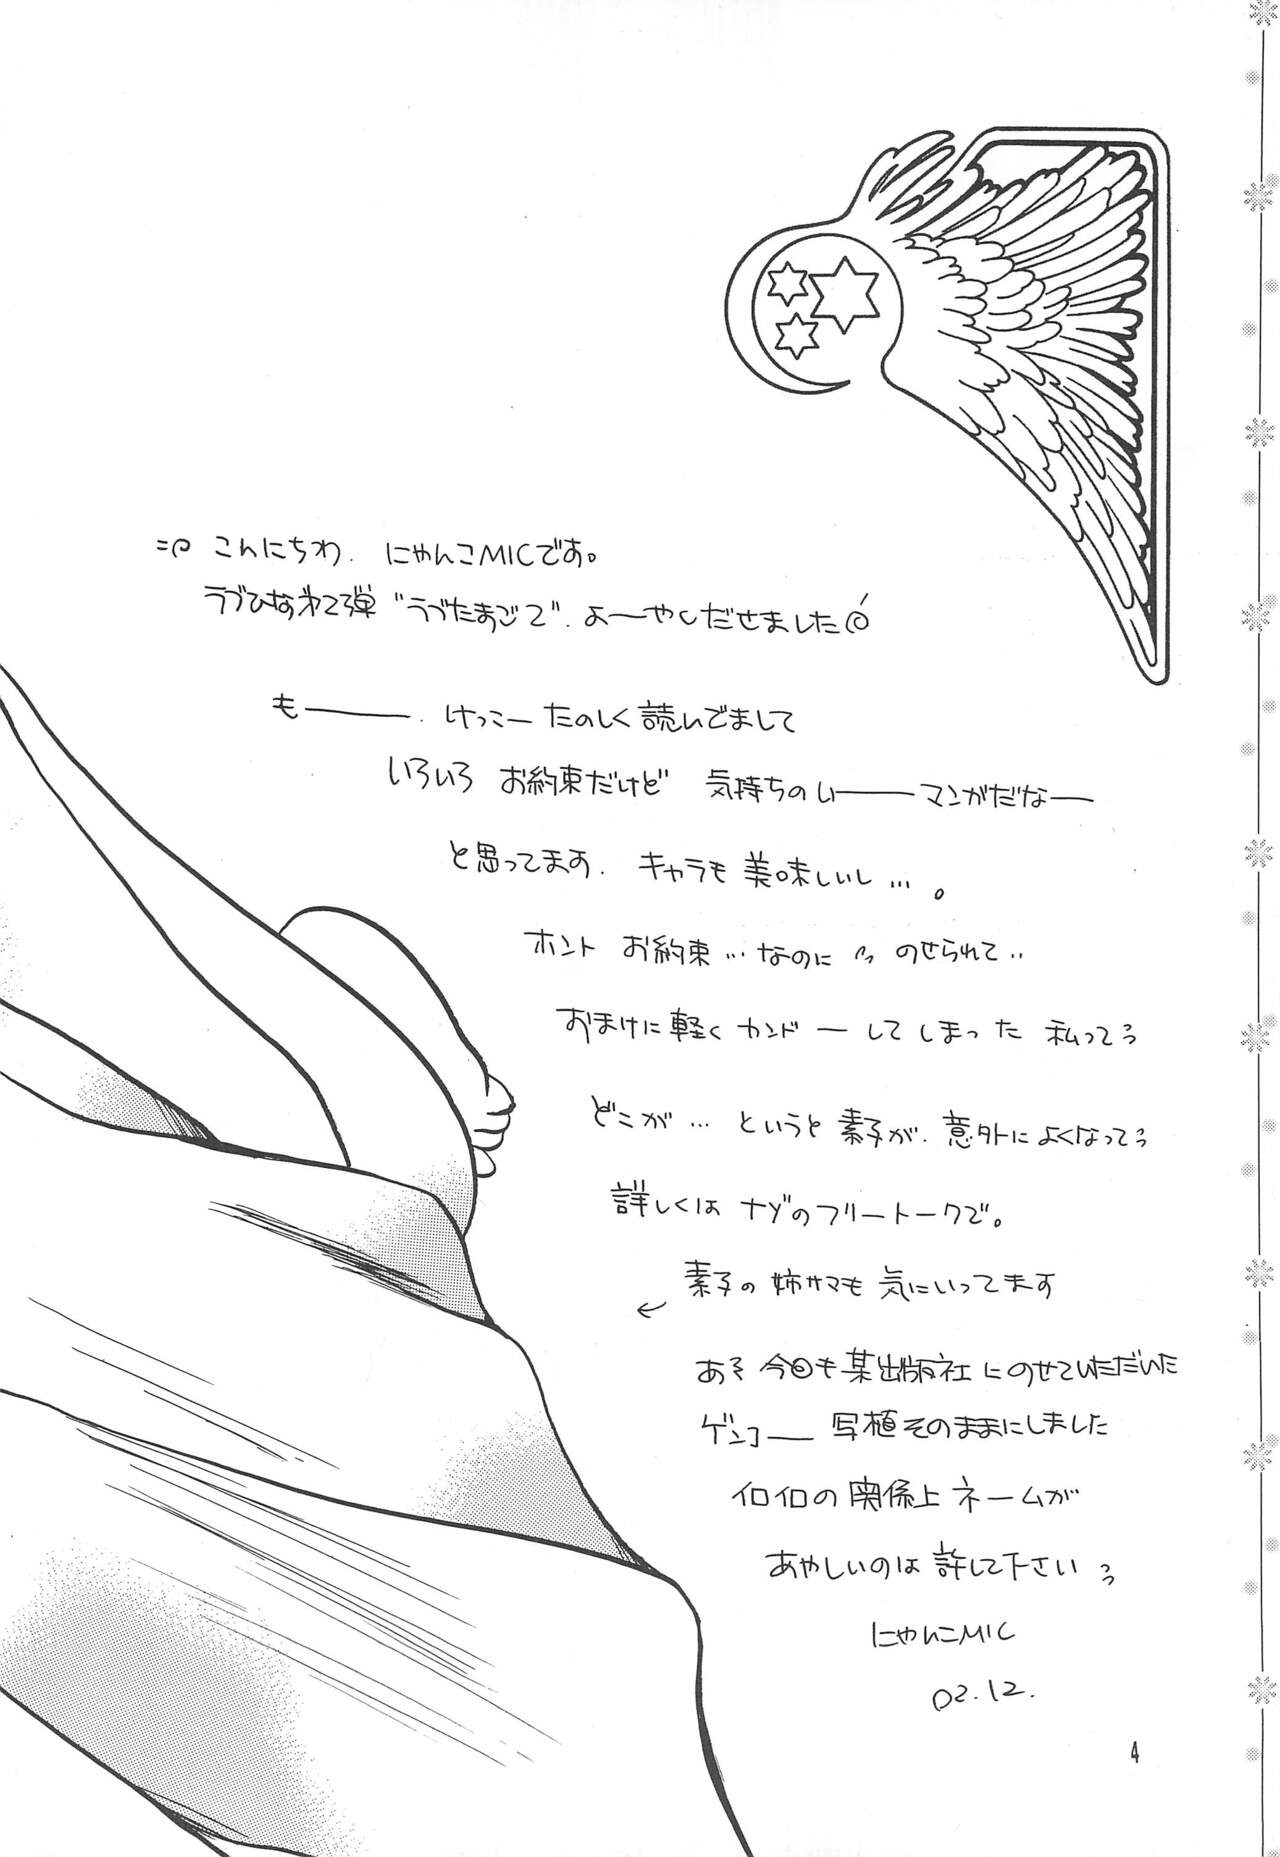 こんにちわ. にゃんこMICです。
ラブひな 弾 "ラブたまごで". よーやしだせました
も―――. けっこーたのしく読んでまして
いろいろ お約束だけど 気持ちのいーーマンがだなー
と思ってます. キャラも美味しいし…。
ホント お約束…なのに のせられて‥
おまけに軽くカンドーしてしまった 私って
どこが…というと素子が. 意外によくなって
詳しくは ナゾのフリートークで。
素子の姉サマも気にいってます
あと 今回も某出版社にのせていただいた
ゲンコー 写植そのままにしました
イロイロの関係上ネームが
あやしいのは許して下さい
にゃんこMIC
02.12.
4